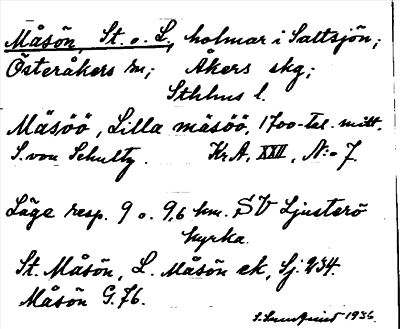 Måsön, St. o. L., holmar i Saltsjön;
Österåkers sn; Åkers skg;
Sthlms l.
Måsöö, Lilla måsöö, 1700-tal. mitt.
S. von Schultz. KrA, XXII, N:o 7.
Läge resp. 9 o. 9,6 km. SV Ljusterö
kyrka.
St. Måsön, L. Måsön ek, Sj. 234.
Måsön G. 76.
1936